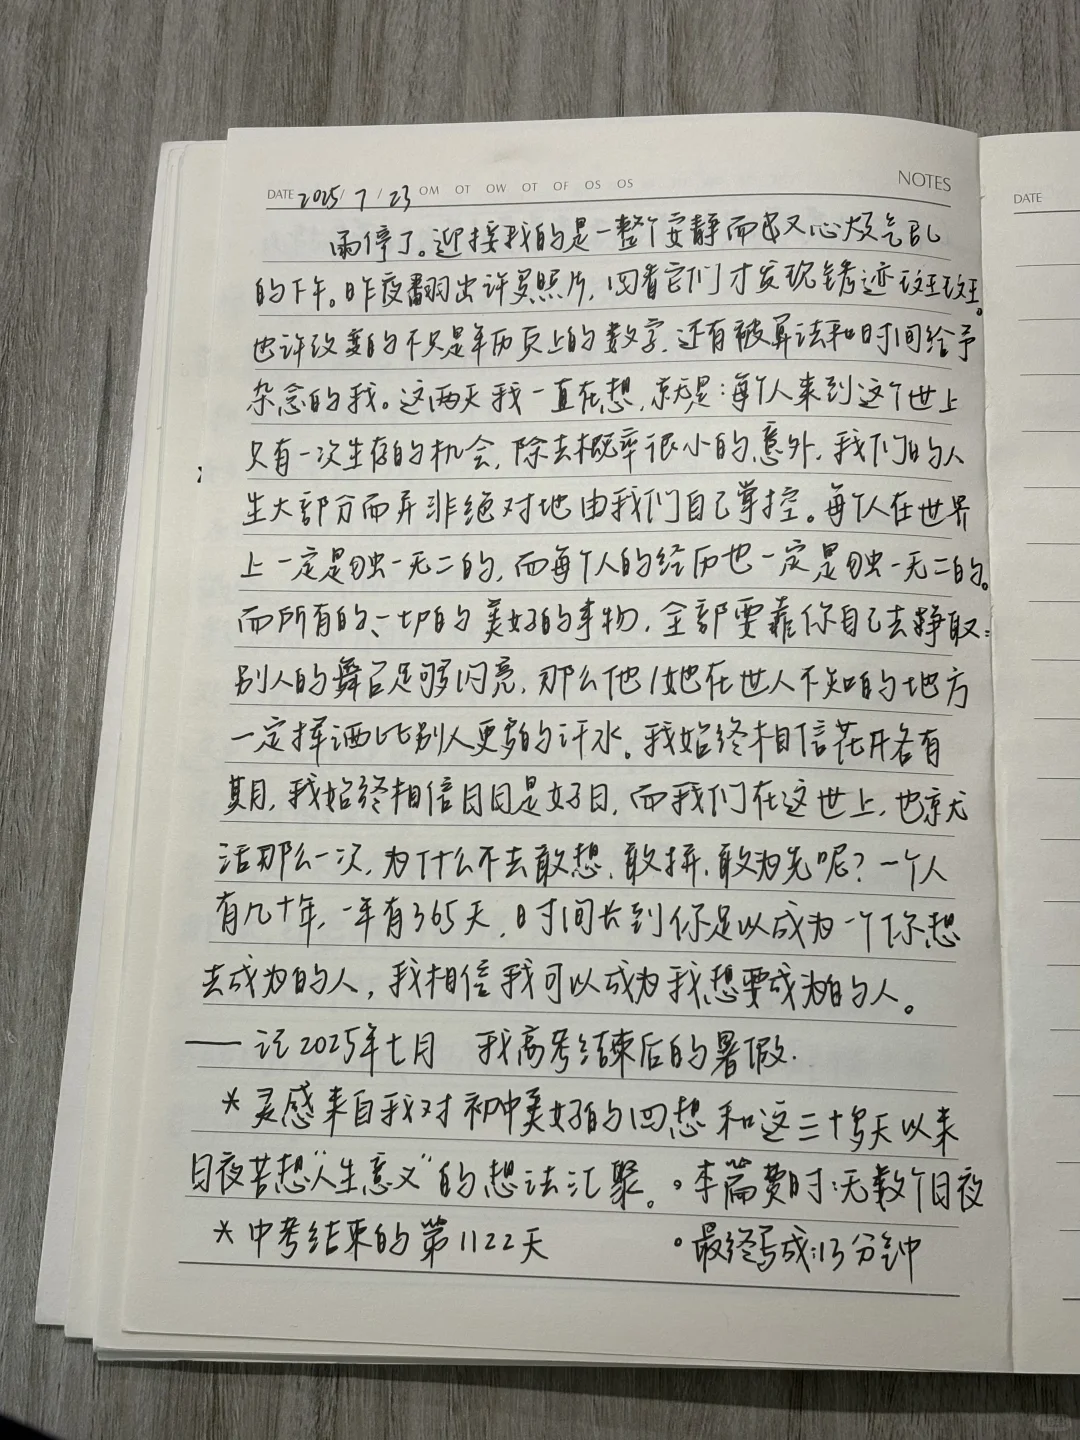 DATE 2025/7/23 OM OT OW OT OF OS OS NOTES
DATE
雨停了。迎接我的是一整个安静而又心烦气乱
的下午。昨夜翻出许多照片,回看它们才发现锈迹斑斑。
也许改变的不只是年历页上的数字,还有被算法和时间给予
杂念的我。这两天我一直在想,就是:每个人来到这个世上
只有一次生存的机会,除去概率很小的意外,我们的人
生大部分而并非绝对地由我们自己掌控。每个人在世界
上一定是独一无二的,而每个人的经历也一定是独一无二的。
而所有的、一切的美好的事物,全部要靠你自己去争取:
别人的舞台足够闪亮,那么他/她在世人不知的地方
一定挥洒比别人更多的汗水。我始终相信花开各有
期,我始终相信日日是好日,而我们在这世上,也就
活那么一次,为什么不去敢想、敢拼、敢为先呢?一个人
有几十年,一年有365天,时间长到你足以成为一个你想
去成为的人,我相信我可以成为我想要成为的人。
——记2025年七月 我高考结束后的暑假.
*灵感来自我对初中美好的回想和这三十多天以来
日夜苦想“人生意义”的想法汇聚。。本篇费时:无数个日夜
*中考结束的第1122天 。最终写成:13分钟